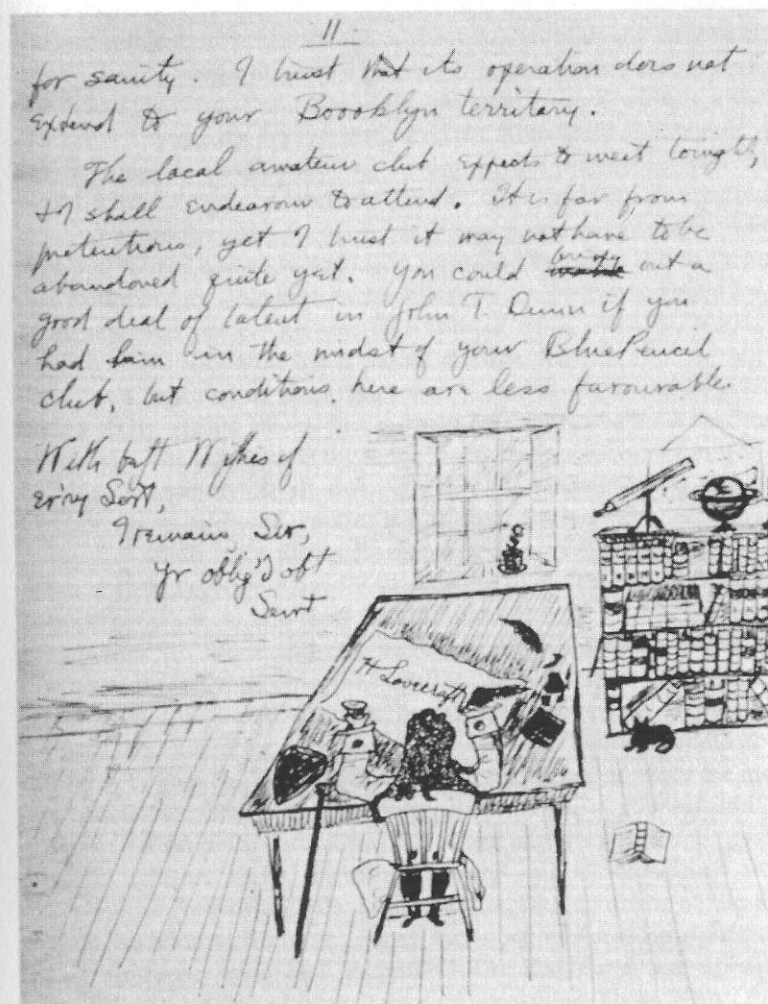 11.
for sanity. I trust that its operation does not
extend to your Boooklyn territory.
The local amateur club expects to meet tonight,
& I shall endeavour to attend. It is far from
pretentious, yet I trust it may not have to be
abandoned quite yet. You could bring out a
good deal of talent in John T. Dunn if you
had him in the midst of your Blue Pencil
club, but conditions here are less favourable.
With best Wishes of
ev'ry Sort,
I remain, Sir,
yr oblig'd obt
Servt
H Lovecraft